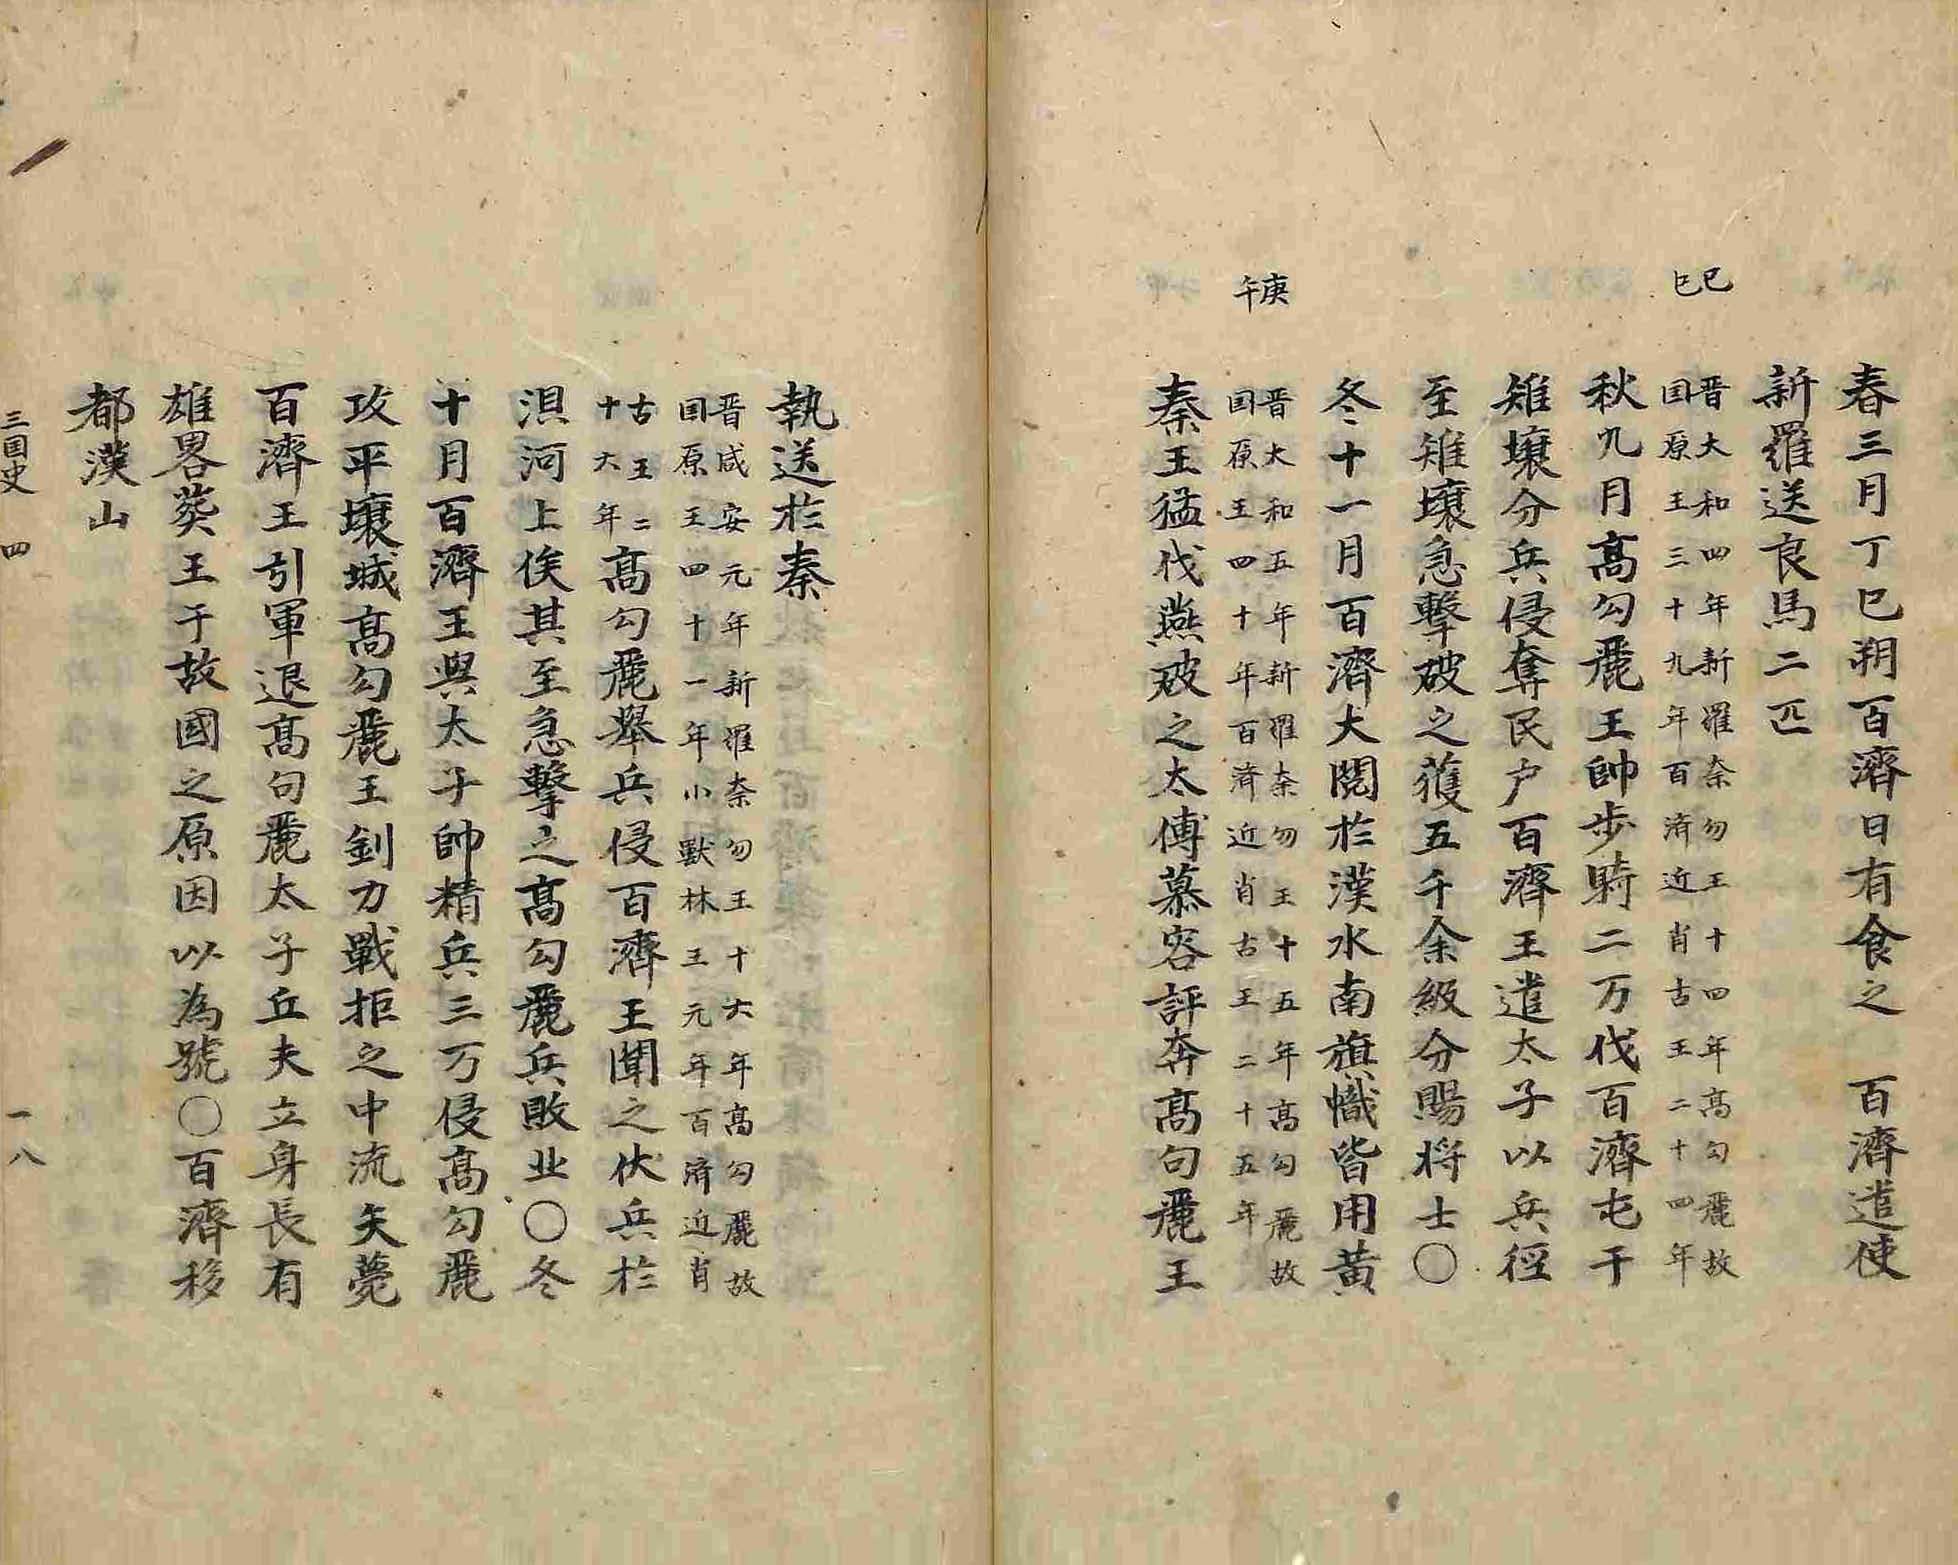 春三月丁巳朔百濟日有食之　百濟遣使
新羅送良馬二匹
己巳
晋大和四年新羅奈勿王十四年高勾麗故
国原王三十九年百済近肖古王二十四年
秋九月高勾麗王帥步騎二万伐百濟屯于
雉壤分兵侵奪民户百濟王遣太子以兵徑
至雉壤急擊破之獲五千余級分賜将士〇
冬十一月百濟大閱於漢水南旗幟皆用黄
庚午
晋大和五年新羅奈勿王十五年高勾麗故
国原王四十年百済近肖古王二十五年
秦王猛伐燕破之太傅慕容評奔高句麗王
執送於秦
晋咸安元年新羅奈勿王十六年高勾麗故
国原王四十一年小獸林王元年百済近肖
古王二
十六年
高勾麗舉兵侵百濟王聞之伏兵於
浿河上俟其至急擊之高勾麗兵敗北〇冬
十月百濟王與太子帥精兵三万侵高勾麗
攻平壤城高勾麗王釗力戰拒之中流矢薨
百濟王引軍退高句麗太子丘夫立身長有
雄畧葬王于故國之原因以為號〇百濟移
都漢山
三国史　四　一八